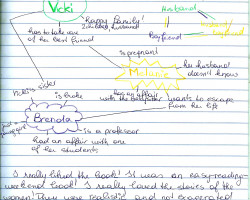 Vicki
Husband
happy family!
2 children husband
has to take care
of her best friend
Boyfriend
is pregnant
Melanie
her husband
doesn't know
Vicki's sister
is broke
has an affair
with the babysitter
wants to escape
from her life
Brenda
is a professor
had an affair with one
of her students
I really liked the book! It was an easy-reading-
weekend book! I really loved the stories of the
women. They were realistic and not exaggerated